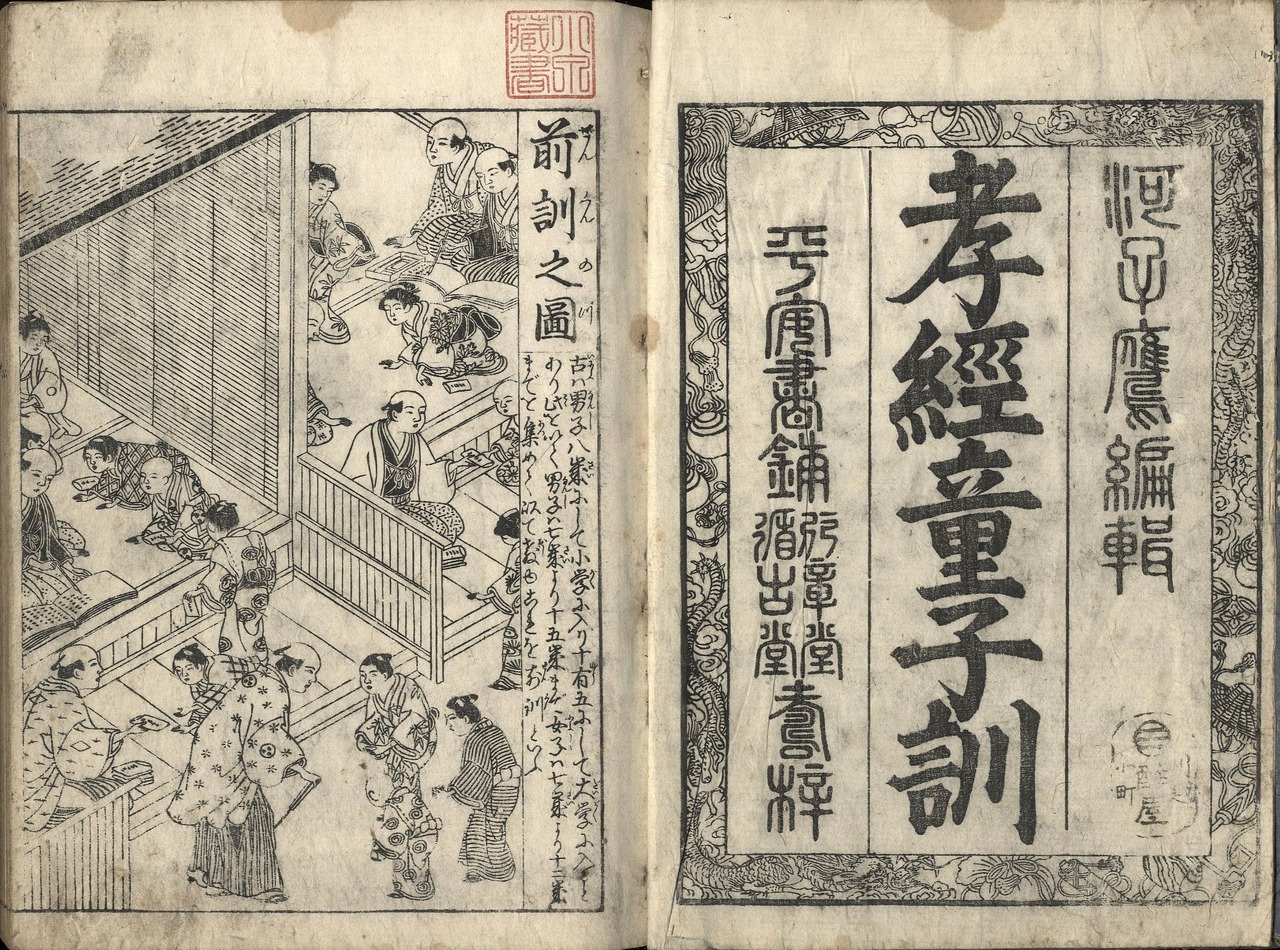 河子鷹編輯
孝經童子訓
平安書鋪
行章堂
循古堂
壽梓
屋
町
藏書
前訓之圖
ぜんくんのづ
古ハ男子八歳にして小学に入り十有五にして大学に入ると
あり男子ハ七歳より十五歳まで女子ハ七歳より十二歳
までを集めこれを前訓といふ